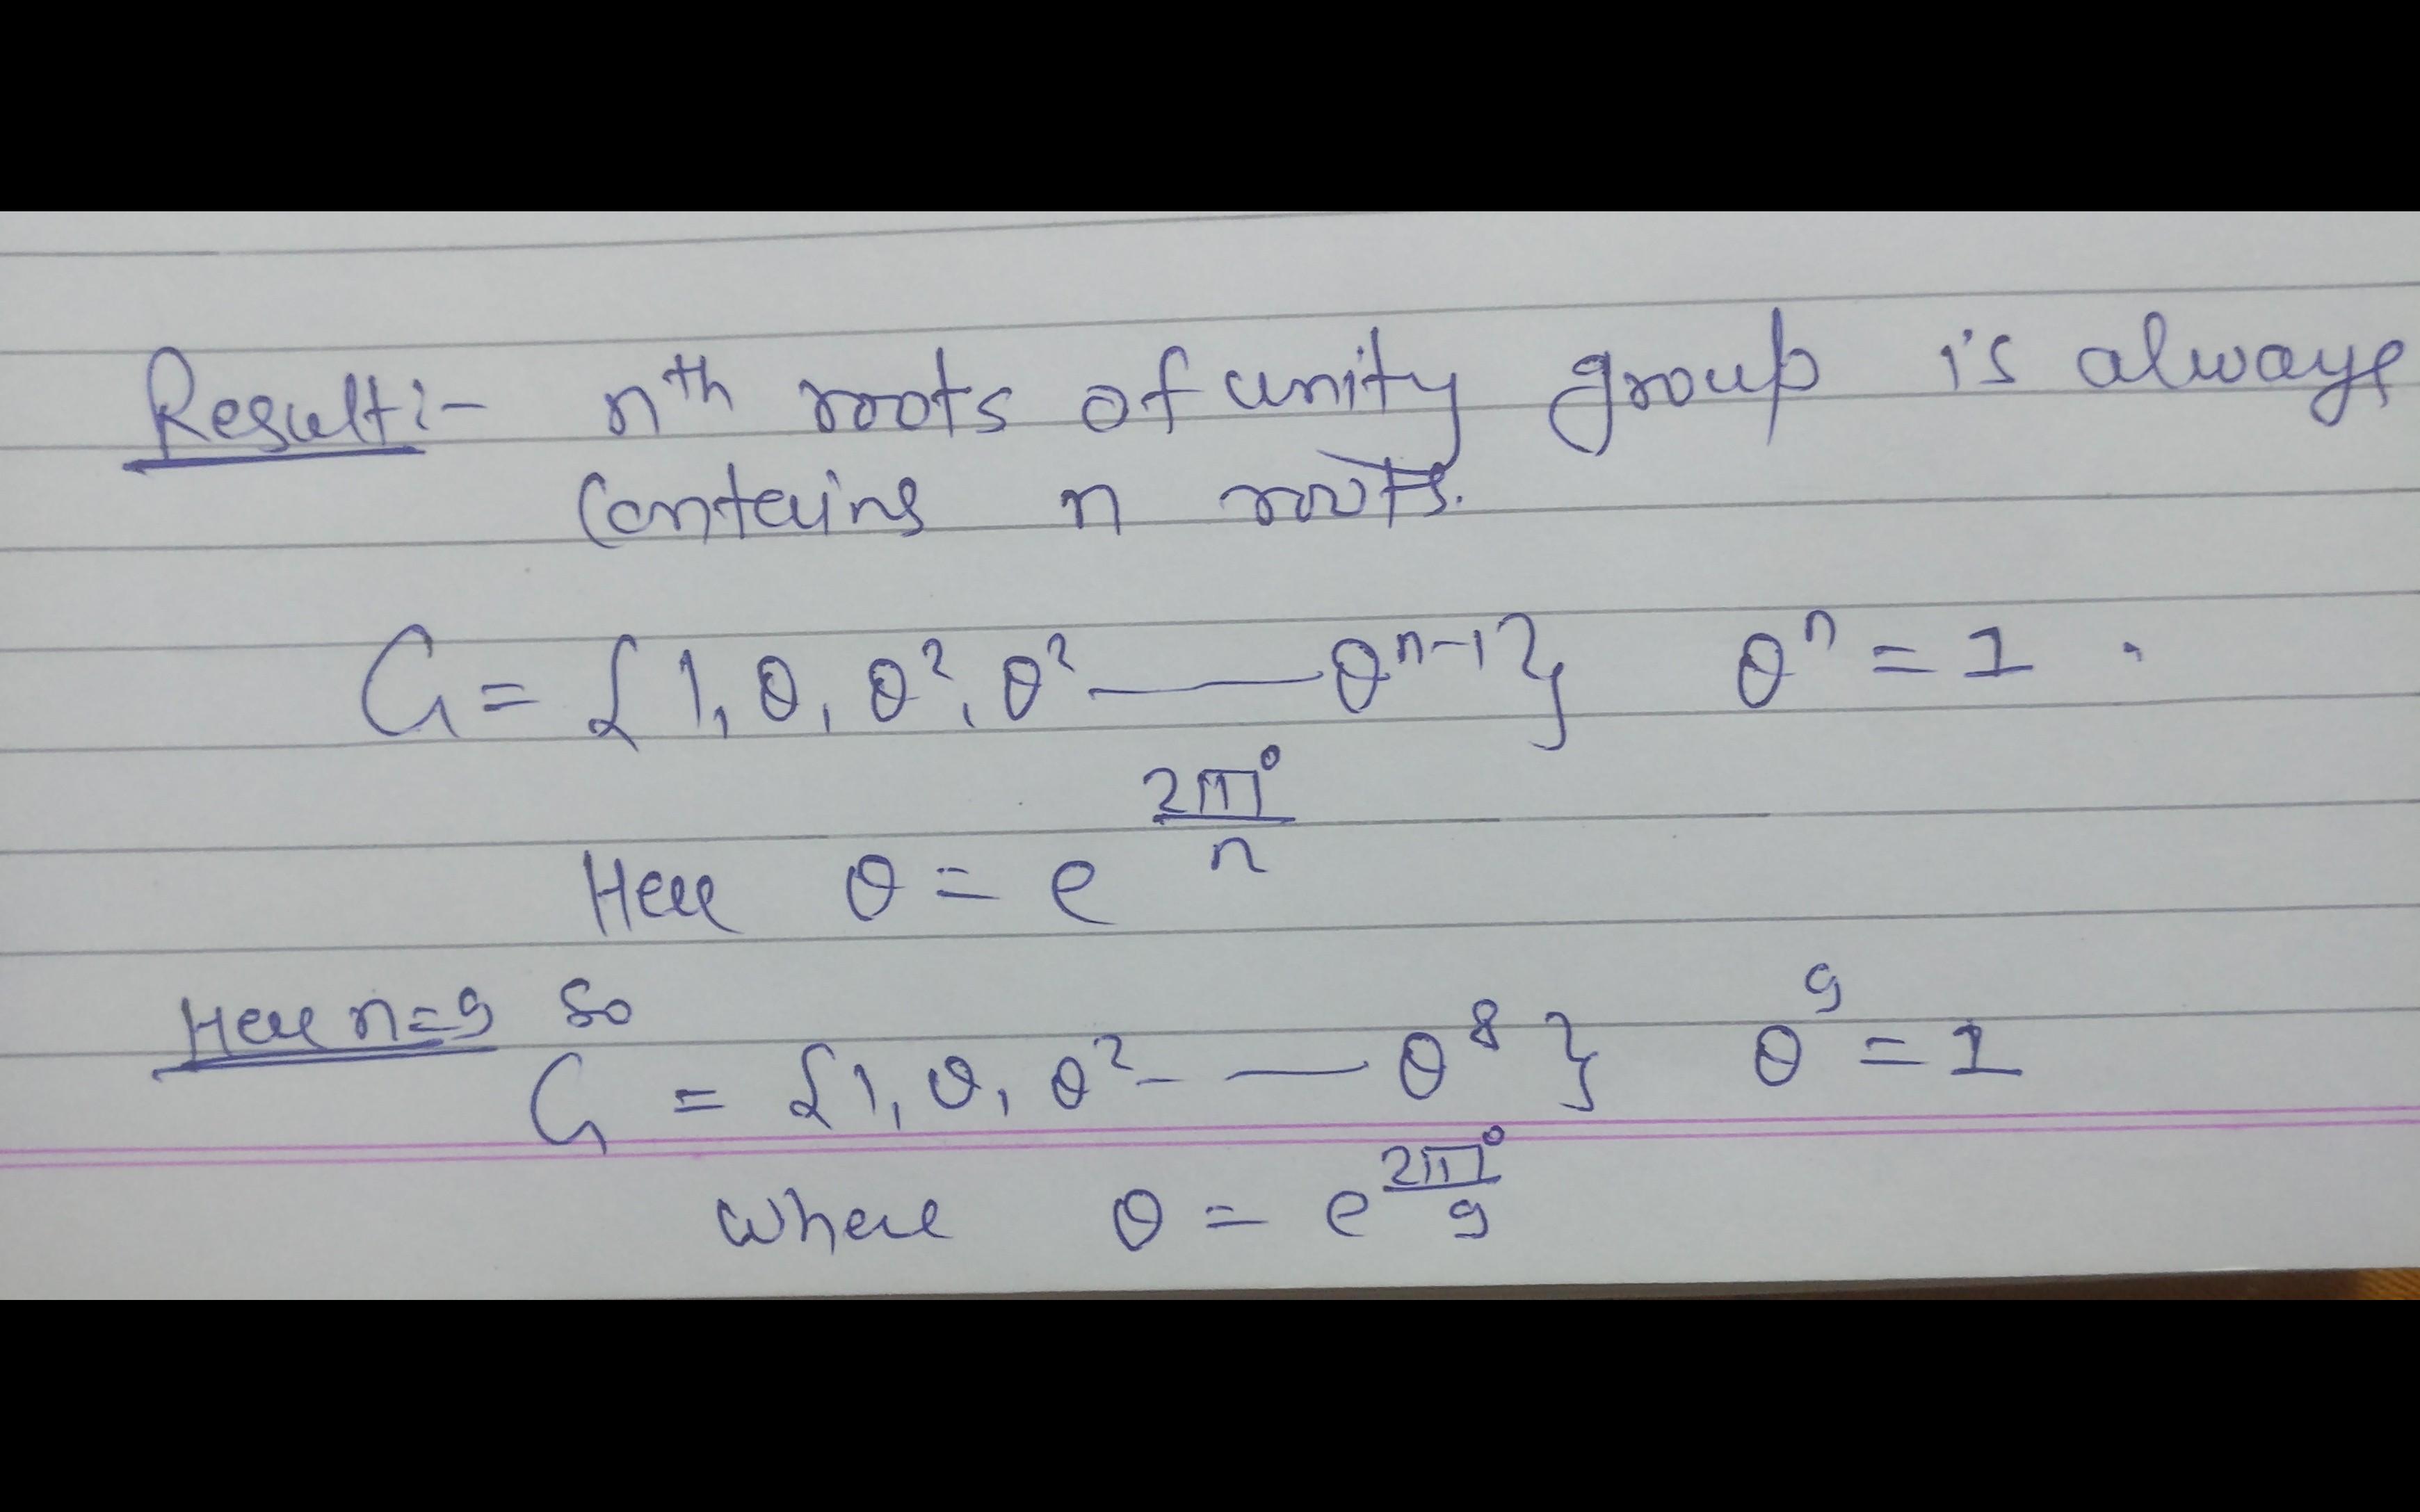 Result:- nth roots of unity group is always
Contains n roots.
G = {1, θ, θ², θ² —— θⁿ⁻¹} θⁿ = 1 .
Here θ = e^(2πi/n)
Here n=9 So
G = {1, θ, θ² - — θ⁸ } θ⁹ = 1
Where θ = e^(2πi/9)